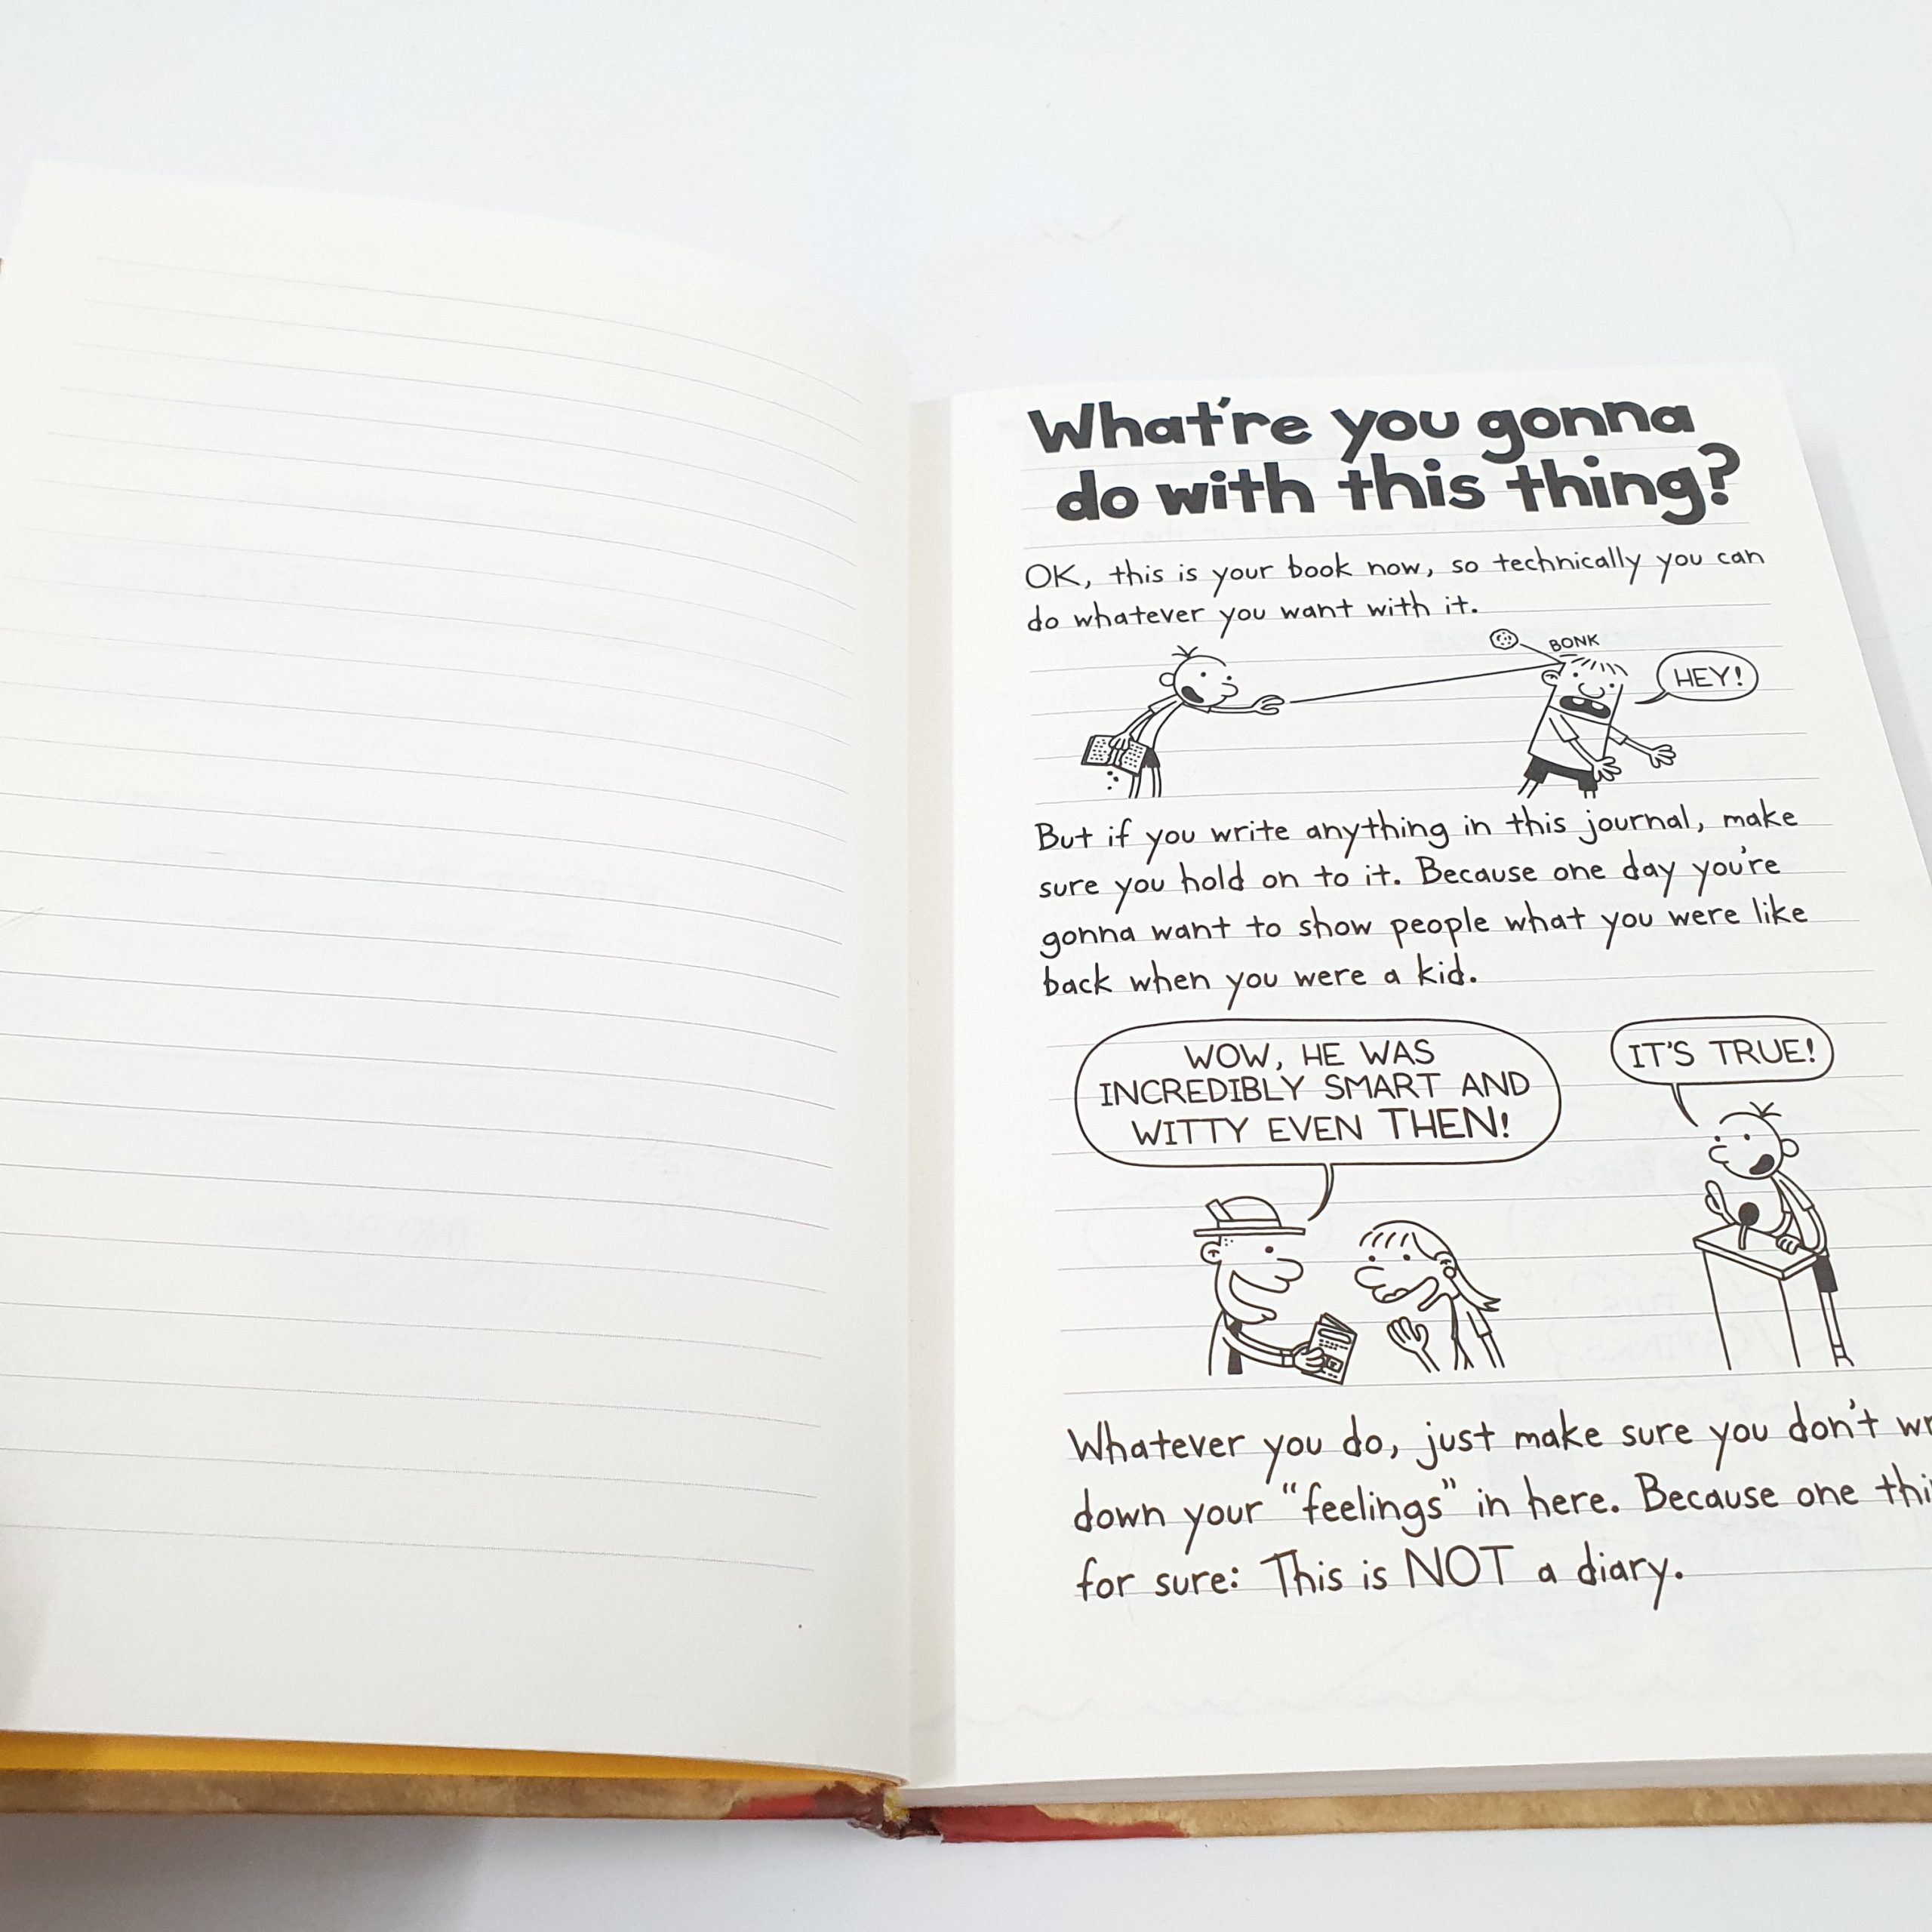 What're you gonna
do with this thing?
OK, this is your book now, so technically you can
do whatever you want with it.
BONK
HEY!
But if you write anything in this journal, make
sure you hold on to it. Because one day you're
gonna want to show people what you were like
back when you were a kid.
WOW, HE WAS
INCREDIBLY SMART AND
WITTY EVEN THEN!
IT'S TRUE!
Whatever you do, just make sure you don't
down your "feelings" in here. Because one
for sure: This is NOT a diary.